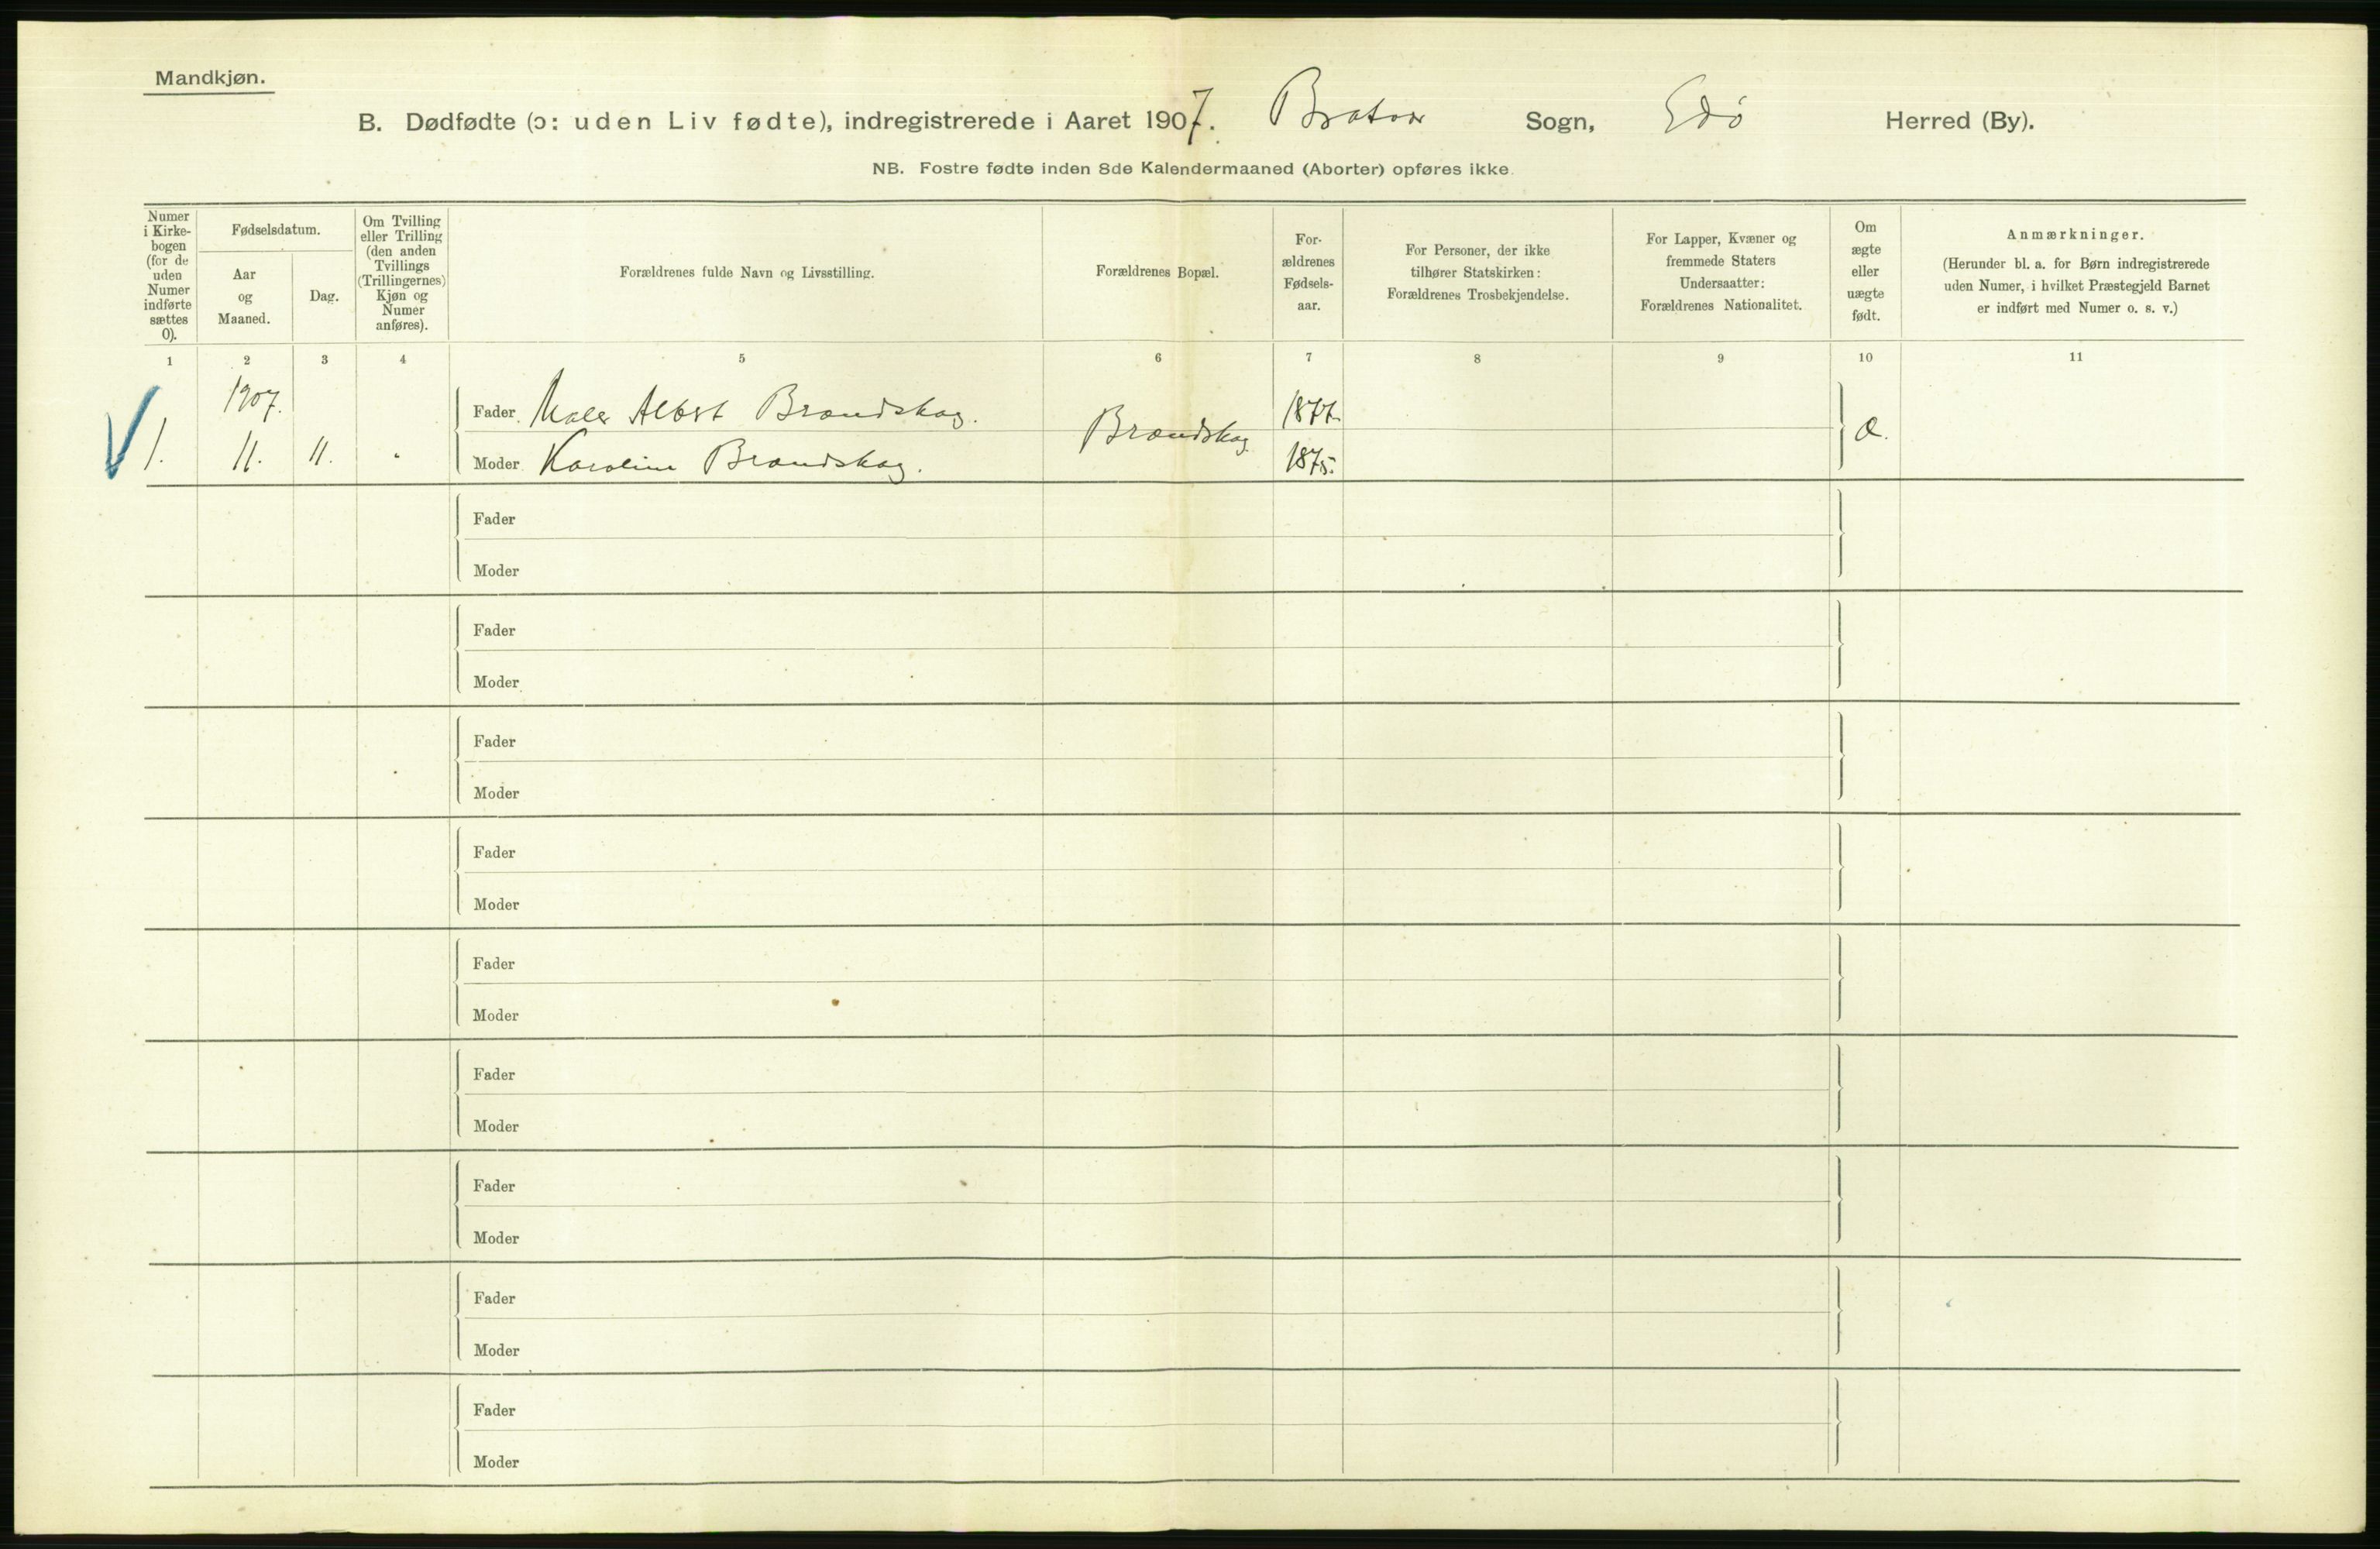 Mandkjøn.
B. Dødfødte (ɔ: uden Liv fødte), indregistrerede i Aaret 1907. Bratvær Sogn, Edø Herred (By).
NB. Fostre fødte inden 8de Kalendermaaned (Aborter) opføres ikke.
Numer i Kirke-bogen (for de uden Numer indførte sættes 0).
Fødselsdatum.
Aar og Maaned.
Dag.
Om Tvilling eller Trilling (den anden Tvillings (Trillingernes) Kjøn og Numer anføres).
Forældrenes fulde Navn og Livsstilling.
Forældrenes Bopæl.
For-ældrenes Fødsels-aar.
For Personer, der ikke tilhører Statskirken: Forældrenes Trosbekjendelse.
For Lapper, Kvæner og fremmede Staters Undersaatter: Forældrenes Nationalitet.
Om ægte eller uægte født.
Anmærkninger.
(Herunder bl. a. for Børn indregistrerede uden Numer, i hvilket Præstegjeld Barnet er indført med Numer o. s. v.)
1 2 3 4 5 6 7 8 9 10 11
1907.
Fader Maler Albert Brændskag. 1877.
1. 11. 11. Brændskag. æ.
Moder Karoline Brændskag. 1875.
Fader
Moder
Fader
Moder
Fader
Moder
Fader
Moder
Fader
Moder
Fader
Moder
Fader
Moder
Fader
Moder
Fader
Moder